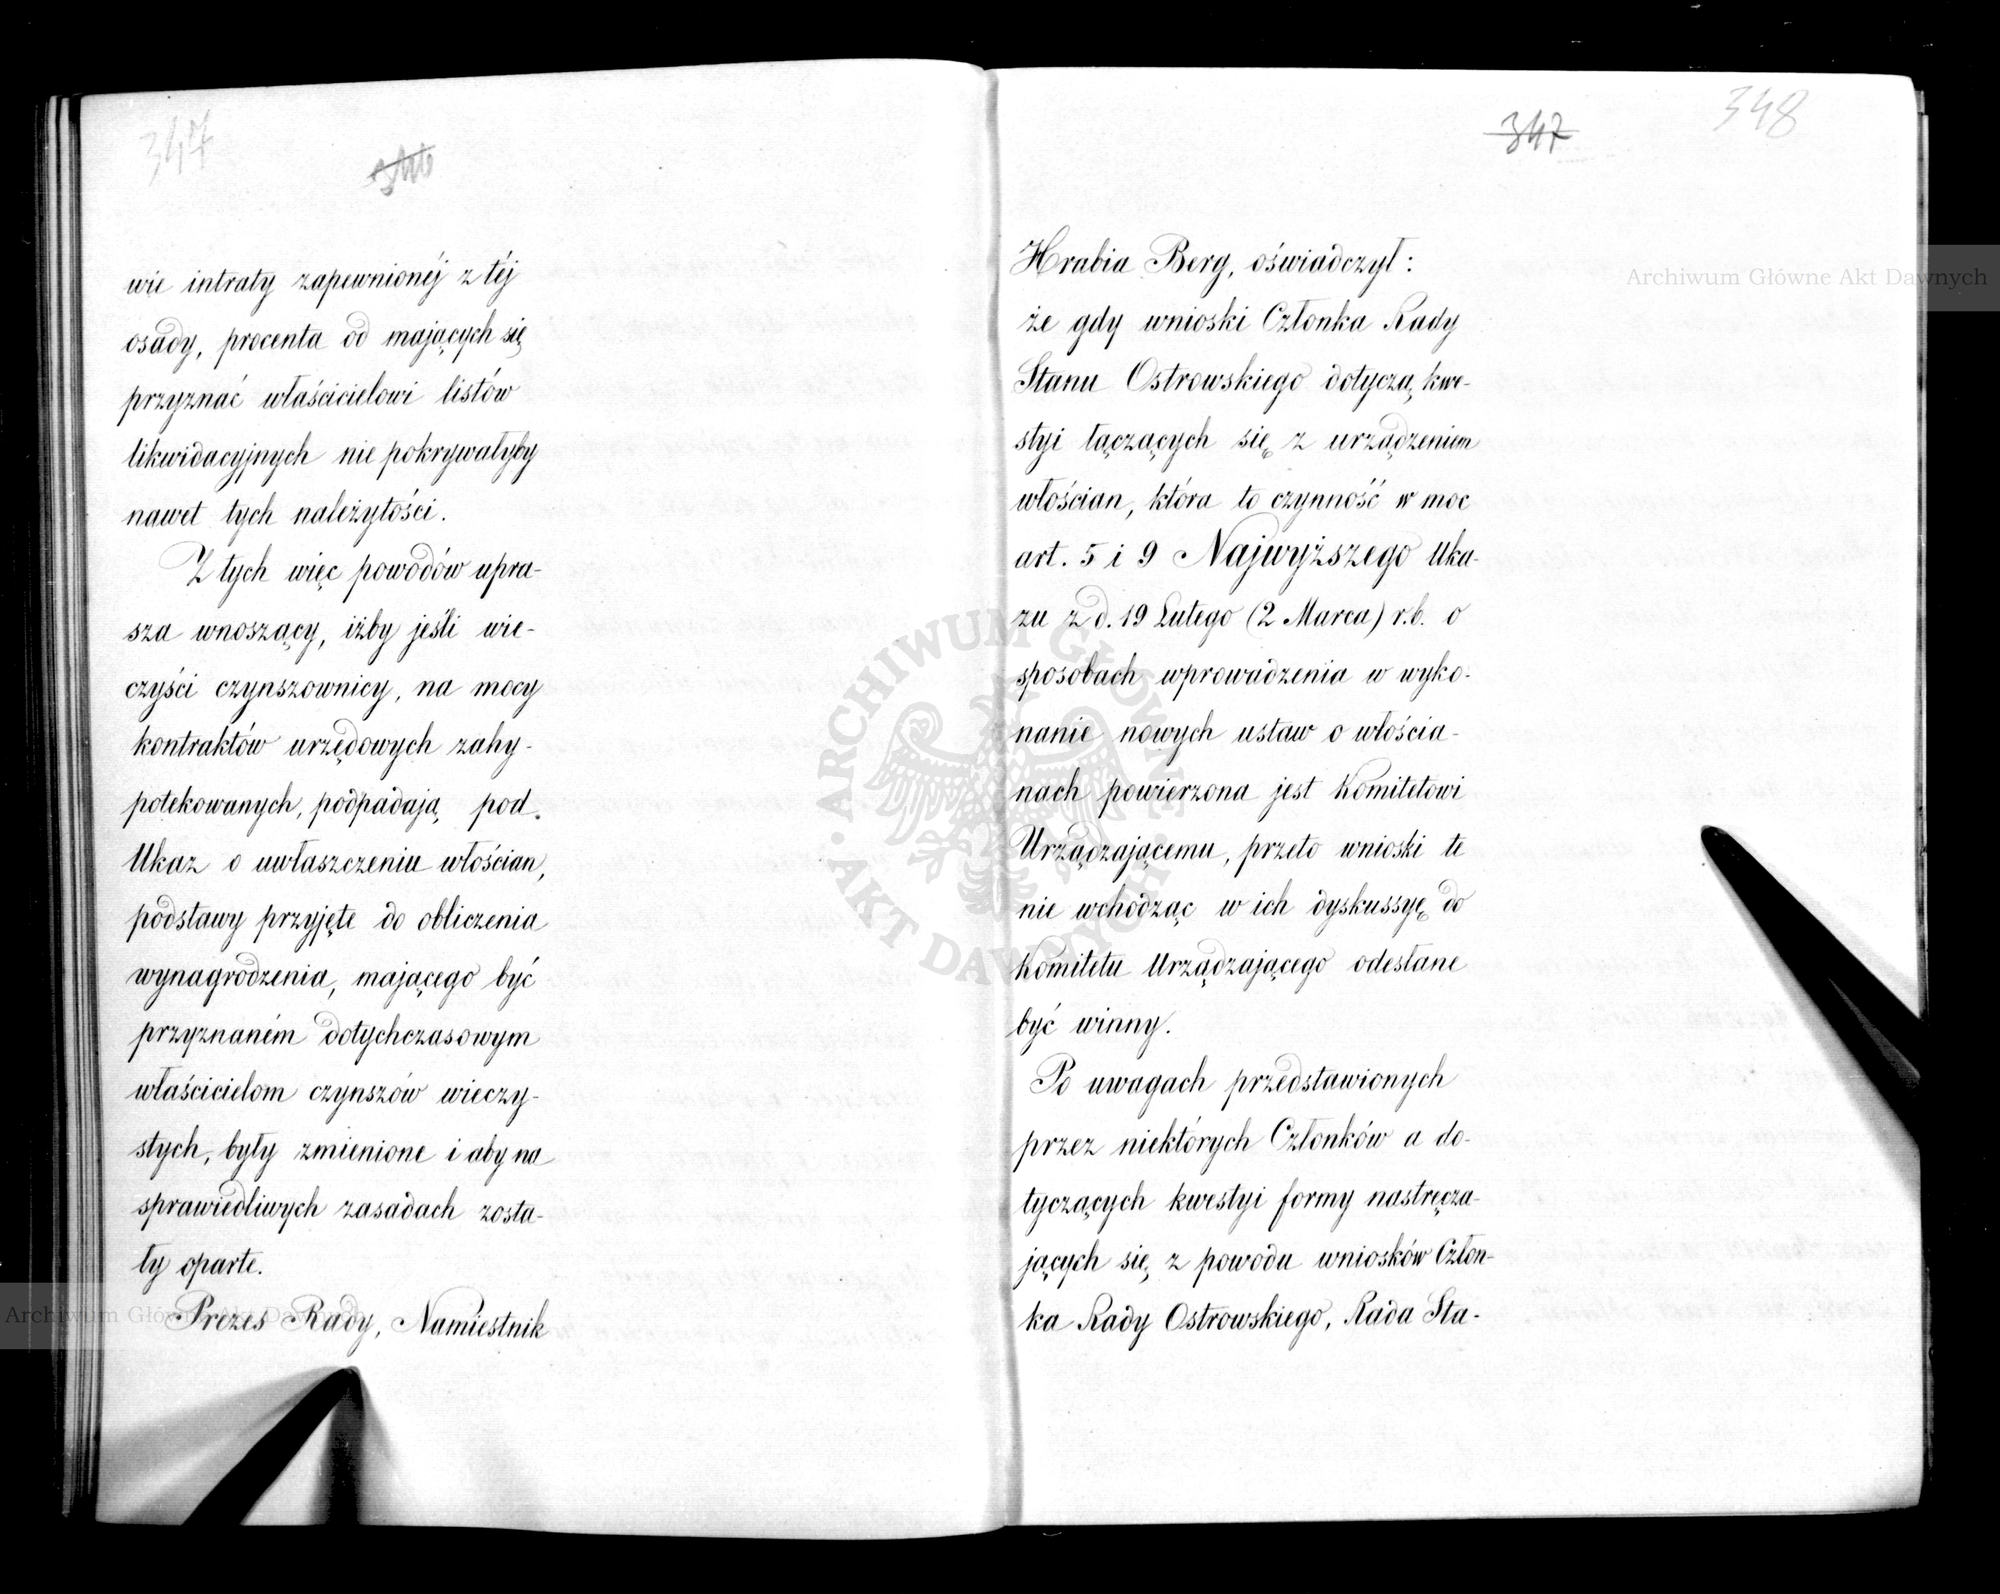 347
346
wie intraty zapewnionéj z téj
osady, procenta od mających się
przyznać właścicielowi listów
likwidacyjnych nie pokrywałyby
nawet tych należytości.
Z tych więc powodów upra-
sza wnoszący, iżby jeśli wie-
czyści czynszownicy, na mocy
kontraktów urzędowych zahy-
potekowanych, podpadają pod
Ukaz o uwłaszczeniu włościan,
podstawy przyjęte do obliczenia
wynagrodzenia, mającego być
przyznaném dotychczasowym
właścicielom czynszów wieczy-
stych, były zmienione i aby na
sprawiedliwych zasadach zosta-
ły oparte.
Prezes Rady, Namiestnik
347
348
Hrabia Berg, oświadczył:
że gdy wnioski Członka Rady
Stanu Ostrowskiego dotyczą kwe-
styi łączących się z urządzeniem
włościan, która to czynność w moc
art. 5 i 9 Najwyższego Uka-
zu z d. 19 Lutego (2 Marca) r.b. o
sposobach wprowadzenia w wyko-
nanie nowych ustaw o włościa-
nach powierzona jest Komitetowi
Urządzającemu, przeto wnioski te
nie wchodząc w ich dyskussyę do
Komitetu Urządzającego odesłane
być winny.
Po uwagach przedstawionych
przez niektórych Członków a do-
tyczących kwestyi formy nastręcza-
jących się z powodu wniosków Człon-
ka Rady Ostrowskiego, Rada Sta-
Archiwum Główne Akt Dawnych
Archiwum Główne Akt Dawnych
ARCHIWUM GŁÓWNE AKT DAWNYCH